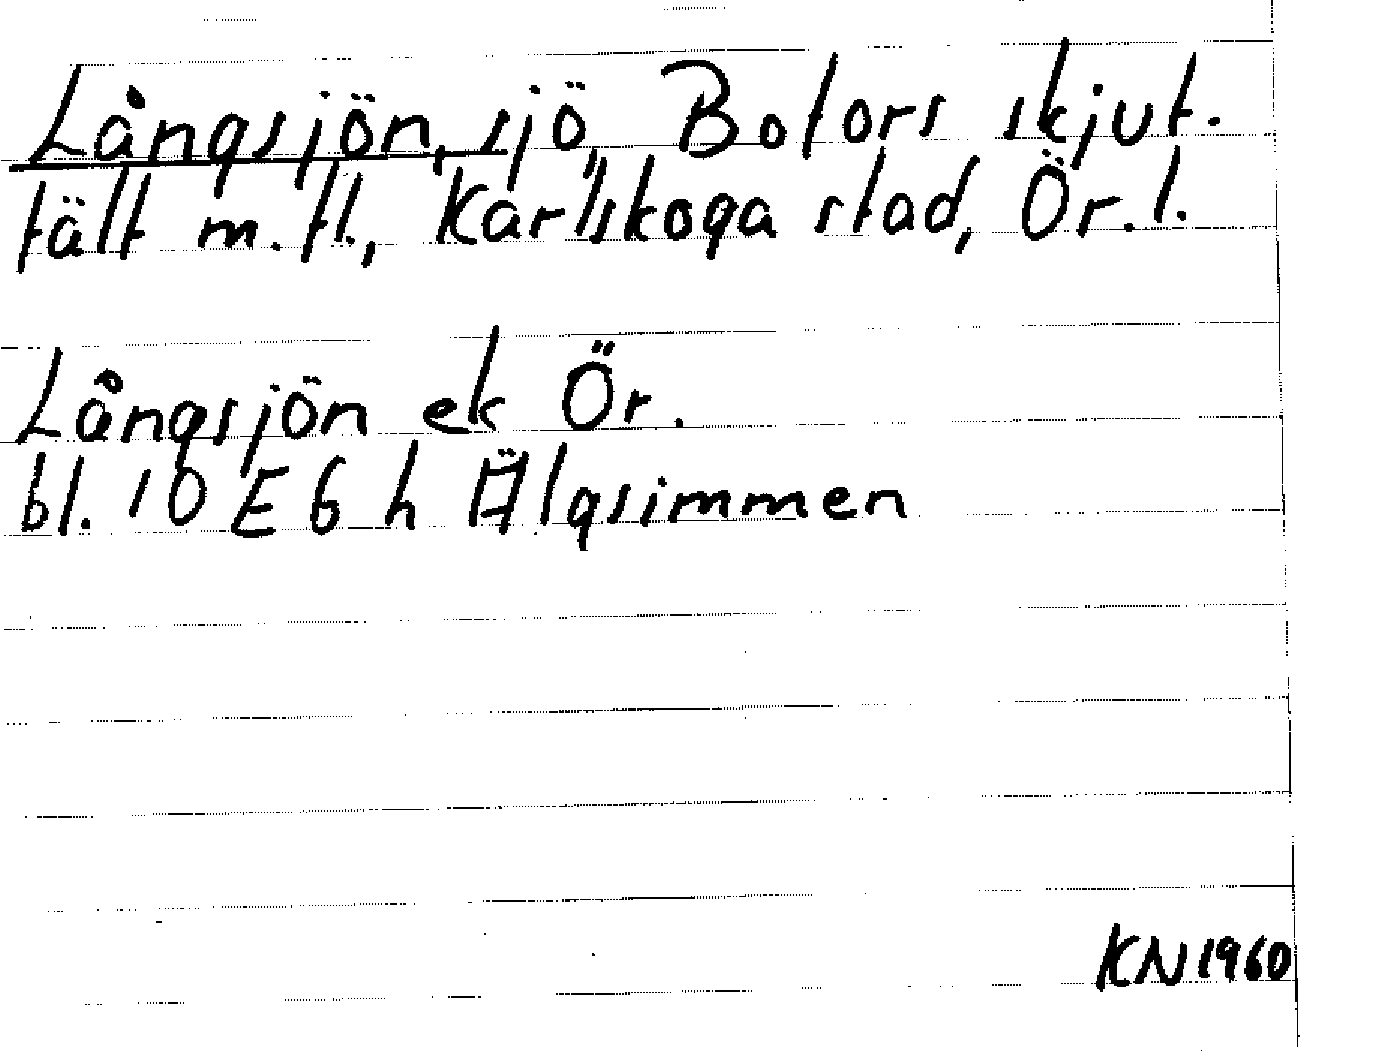 Långsjön, sjö, Bofors skjut-
fält m.fl., Karlskoga stad, Ör.l.
Långsjön ek Ör.
bl. 10 E 6 h Älgsimmen
KN 1960